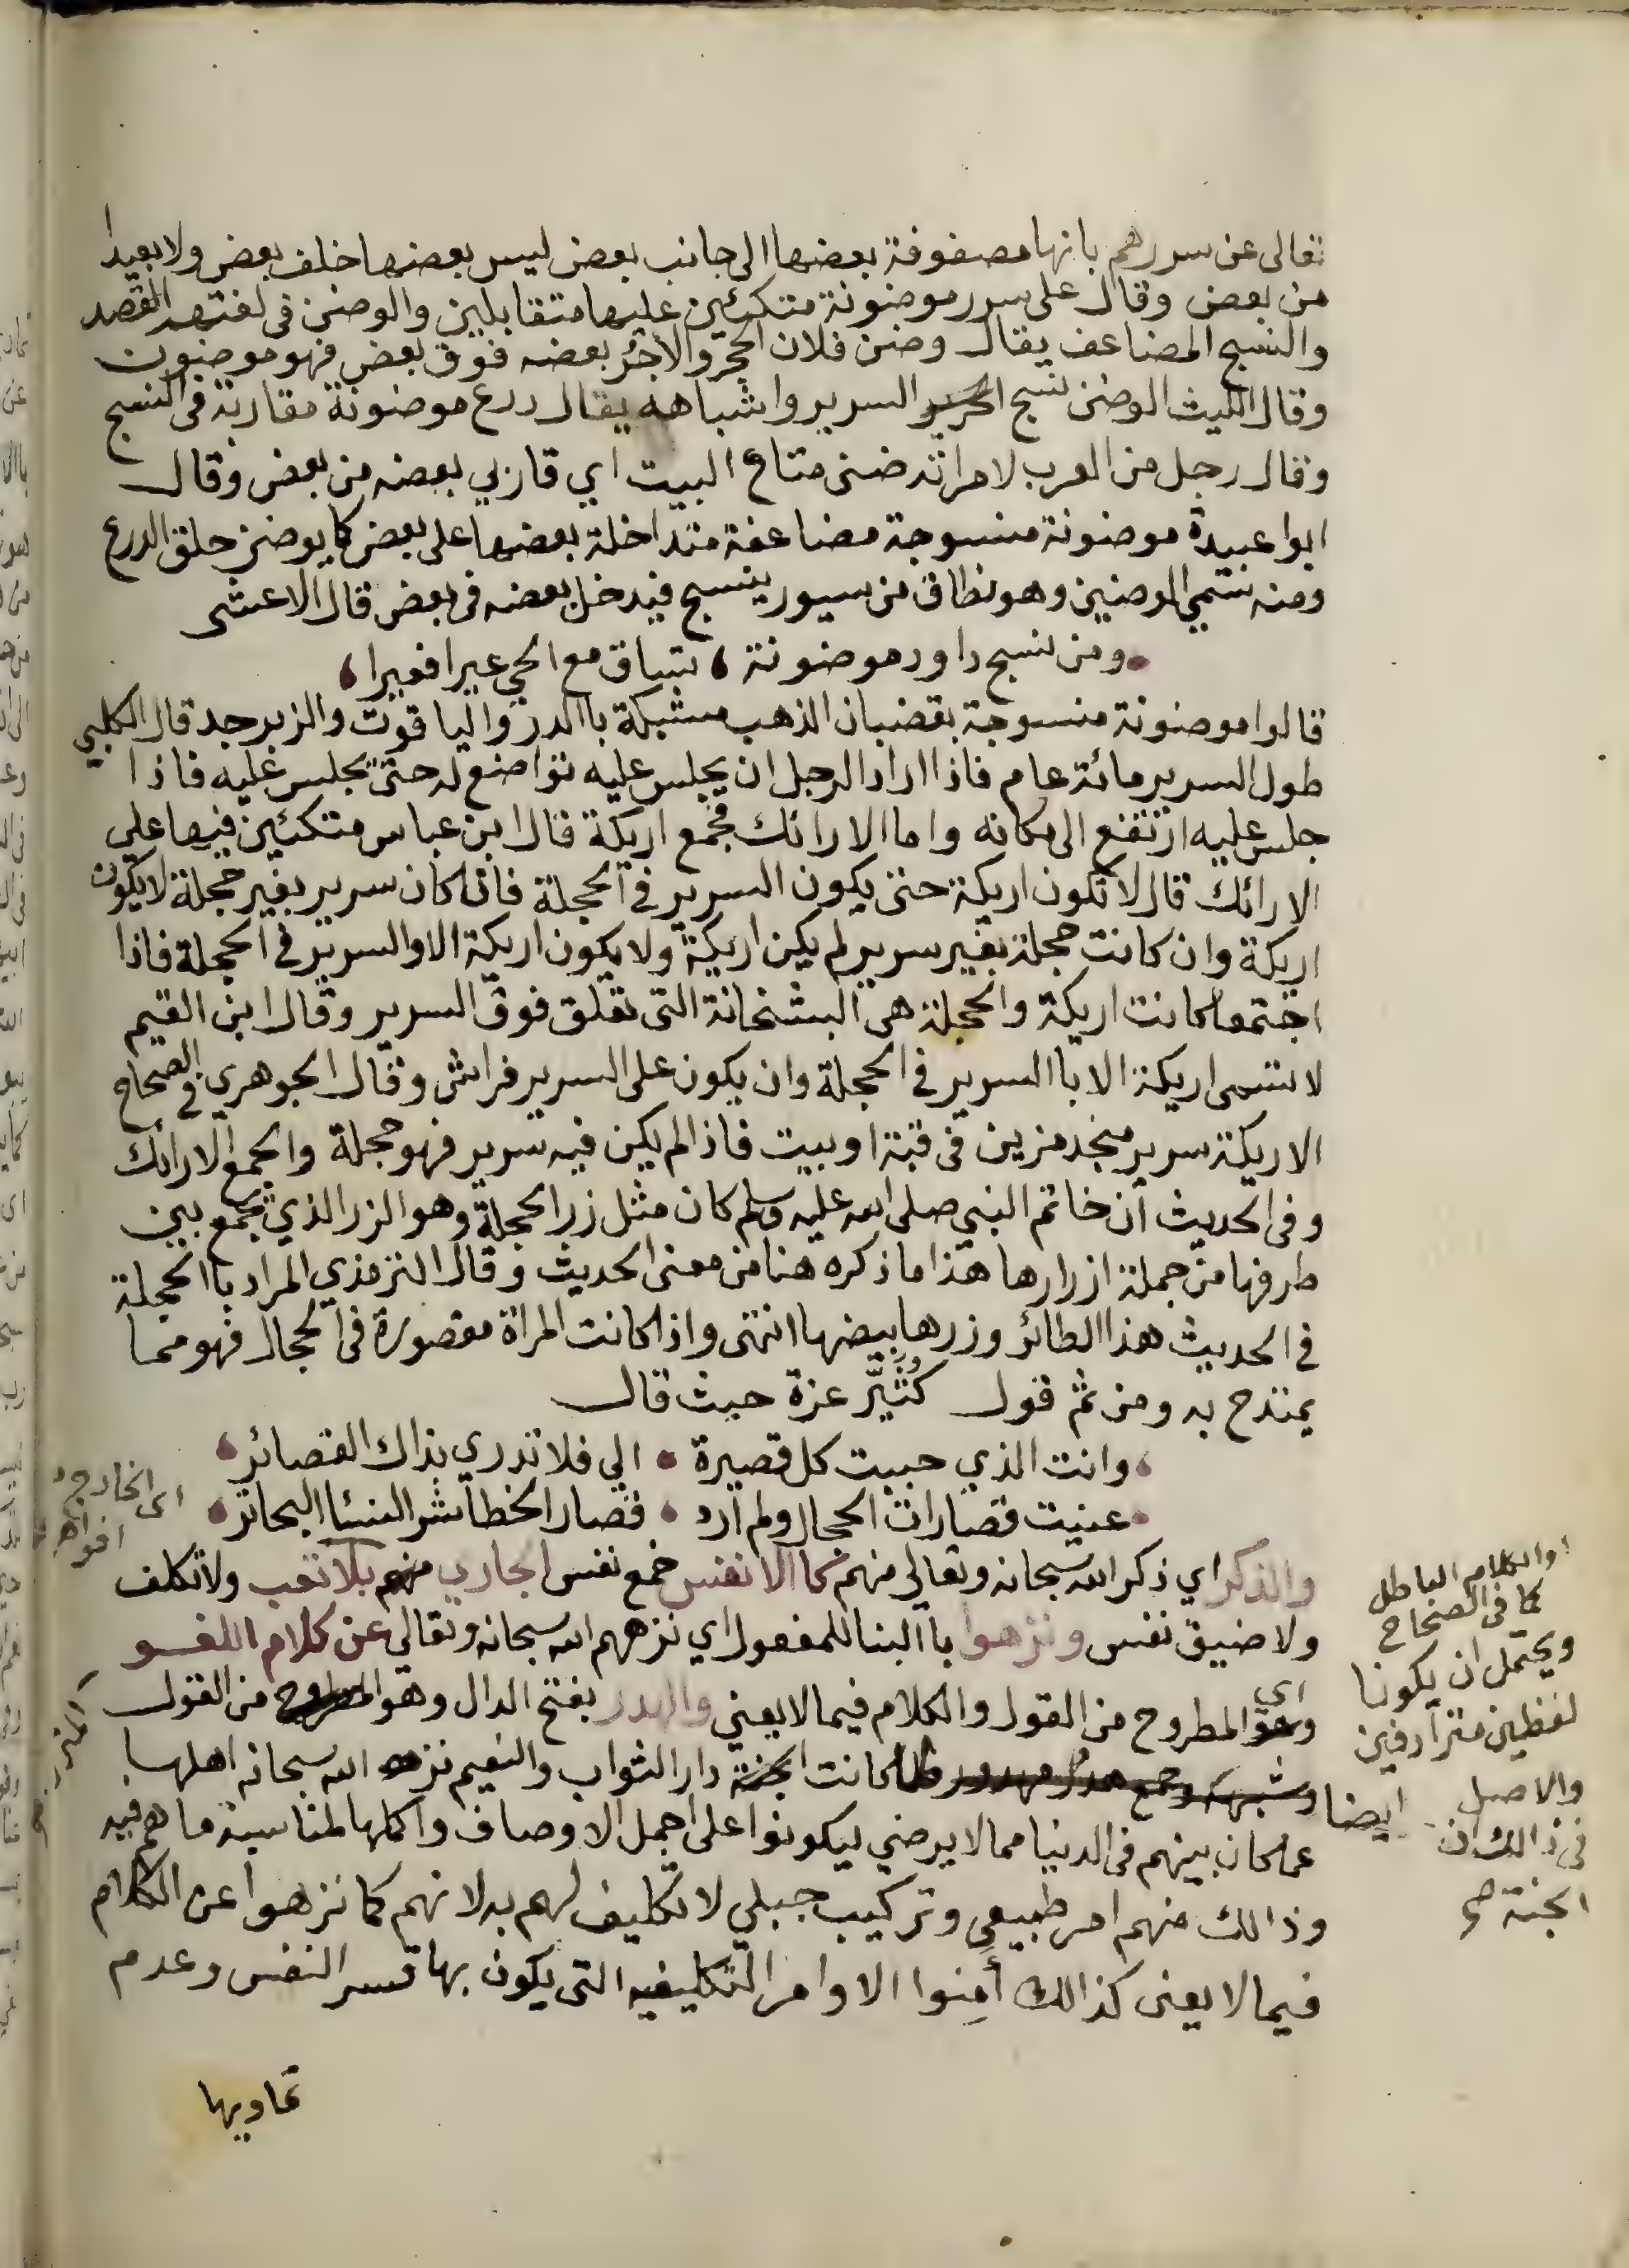 تعالى عن سررهم بانها مصفوفة بعضها الى جانب بعض ليس بعضها خلف بعض ولا بعيدا
من بعض وقال على سرر موضونة متكئين عليها متقابلين والوضن في لغتهم القصد
والنسج المضاعف يقال وضن فلان الحجر والاجر بعضه فوق بعض فهو موضون
وقال الليث الوضن نسج السرير واشباهه يقال درع موضونة مقاربة في النسج
وقال رجل من العرب لامراته ضنى متاع البيت اي قاربي بعضه من بعض وقال
ابوا عبيدة موضونة منسوجة مضاعفة متداخلة بعضها على بعض كما يوضن حلق الدرع
ومنه سمي الوضين وهو نطاق من سيور ينسج فيدخل بعضه في بعض قال الاعشى
ومن نسج داود موضونة ، تساق مع الحي عيرا فعيرا ،
قالوا موضونة منسوجة بقضبان الذهب مشبكة باالدر والياقوت والزبرجد قال الكلبي
طول السرير مائة عام فاذا اراد الرجل ان يجلس عليه تواضع له حتى يجلس عليه فاذا
جلس عليه ارتفع الى مكانه واما الارائك فجمع اريكة قال ابن عباس متكئين فيها على
الارائك قال لا تكون اريكة حتى يكون السرير في الحجلة فان كان سرير بغير حجلة لا يكون
اريكة وان كانت حجلة بغير سرير لم يكن اريكة ولا يكون اريكة الا والسرير في الحجلة فاذا
اجتمعا كانت اريكة والحجلة هي البشخانة التى تعلق فوق السرير وقال ابن القيم
لا تسمى اريكة الا باالسرير في الحجلة وان يكون على السرير فراش وقال الجوهري في الصحاح
الاريكة سرير منجد مزين في قبة او بيت فاذا لم يكن فيه سرير فهو حجلة والجمع الارائك
وفى الحديث ان خاتم النبي صلى الله عليه وسلم كان مثل زر الحجلة وهو الزر الذي يجمع بين
طرفها من جملة ازرارها هذا ما ذكره هنا من معنى الحديث وقال الترمذي المراد باالحجلة
في الحديث هذا الطائر وزرها بيضها انتهى واذا كانت المراة مقصورة في الحجال فهو مما
يمتدح به ومن ثم قول كُثَيِّر عزة حيث قال
، وانت الذي حببت كل قصيرة • الي فلا تدري بذاك القصائر ،
• عنيت قصارات الحجال ولم ارد • قصار الخطا شر النسا البحاتر •
والذكر اي ذكر الله سبحانه وتعالى منهم كما الانفس جمع نفس الجاري منهم بلا تعب ولا تكلف
ولا ضيق نفس ونزهوا باالبنا للمفعول اي نزههم الله سبحانه وتعالى عن كلام اللغو
اي المطروح من القول والكلام فيما لا يعني والهدر بفتح الدال وهو المطروح من القول
وشبهه وجمع هدر مهدور فلما كانت الجنة دار الثواب والنعيم نزه الله سبحانه اهلها
عما كان بينهم فى الدنيا مما لا يرضي ليكونوا على اجمل الاوصاف واكملها لمناسبة ما هم فيه
وذالك منهم امر طبيعي وتركيب جبلي لا تكليف لهم به لانهم كما نزهوا عن الكلام
فيما لا يعنى كذالك أمِنوا الاوامر التكليفيه التى يكون بها قسر النفس وعدم
او الكلام الباطل
كما في الصحاح
ويحتمل ان يكونا
لفظين مترادفين
ايضا
والاصل
في ذالك ان
الجنة صح
اى الخارج